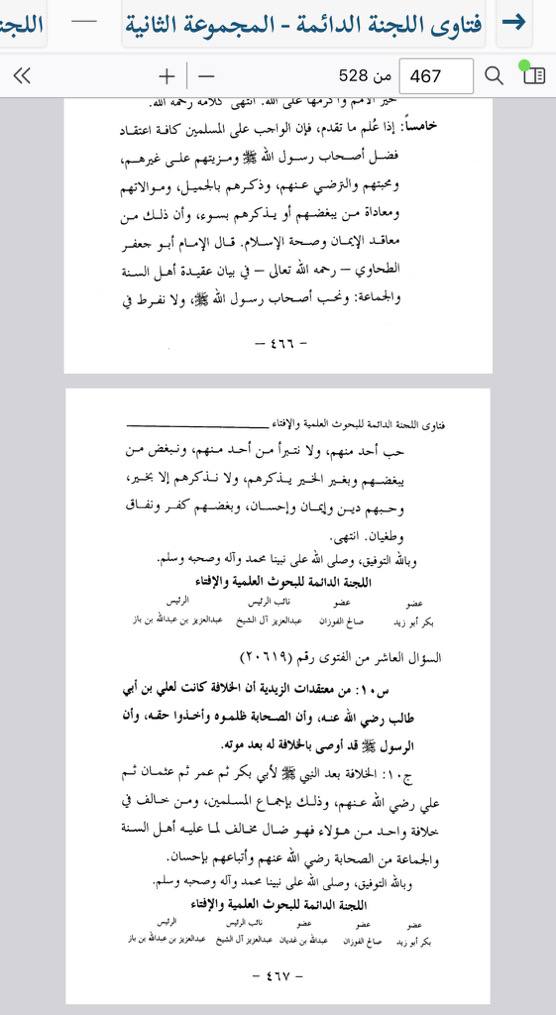 فتاوى اللجنة الدائمة - المجموعة الثانية — اللجن
467 من 528
خير الأمم وأكرمها على الله. انتهى كلامه رحمه الله.
خامساً: إذا عُلم ما تقدم، فإن الواجب على المسلمين كافة اعتقاد
فضل أصحاب رسول الله ﷺ ومزيتهم على غيرهم،
ومحبتهم والترضي عنهم، وذكرهم بالجميل، وموالاتهم
ومعاداة من يبغضهم أو يذكرهم بسوء، وأن ذلك من
معاقد الإيمان وصحة الإسلام. قال الإمام أبو جعفر
الطحاوي – رحمه الله تعالى – في بيان عقيدة أهل السنة
والجماعة: ونحب أصحاب رسول الله ﷺ، ولا نفرط في
– ٤٦٦ –
فتاوى اللجنة الدائمة للبحوث العلمية والإفتاء
حب أحد منهم، ولا نتبرأ من أحد منهم، ونبغض من
يبغضهم وبغير الخير يذكرهم، ولا نذكرهم إلا بخير،
وحبهم دين وإيمان وإحسان، وبغضهم كفر ونفاق
وطغيان. انتهى.
وبالله التوفيق، وصلى الله على نبينا محمد وآله وصحبه وسلم.
اللجنة الدائمة للبحوث العلمية والإفتاء
عضو عضو نائب الرئيس الرئيس
بكر أبو زيد صالح الفوزان عبدالعزيز آل الشيخ عبدالعزيز بن عبدالله بن باز
السؤال العاشر من الفتوى رقم (٢٠٦١٩)
س١٠: من معتقدات الزيدية أن الخلافة كانت لعلي بن أبي
طالب رضي الله عنه، وأن الصحابة ظلموه وأخذوا حقه، وأن
الرسول ﷺ قد أوصى بالخلافة له بعد موته.
ج١٠: الخلافة بعد النبي ﷺ لأبي بكر ثم عمر ثم عثمان ثم
علي رضي الله عنهم، وذلك بإجماع المسلمين، ومن خالف في
خلافة واحد من هؤلاء فهو ضال مخالف لما عليه أهل السنة
والجماعة من الصحابة رضي الله عنهم وأتباعهم بإحسان.
وبالله التوفيق، وصلى الله على نبينا محمد وآله وصحبه وسلم.
اللجنة الدائمة للبحوث العلمية والإفتاء
عضو عضو عضو نائب الرئيس الرئيس
بكر أبو زيد صالح الفوزان عبدالله بن غديان عبدالعزيز آل الشيخ عبدالعزيز بن عبدالله بن باز
– ٤٦٧ –